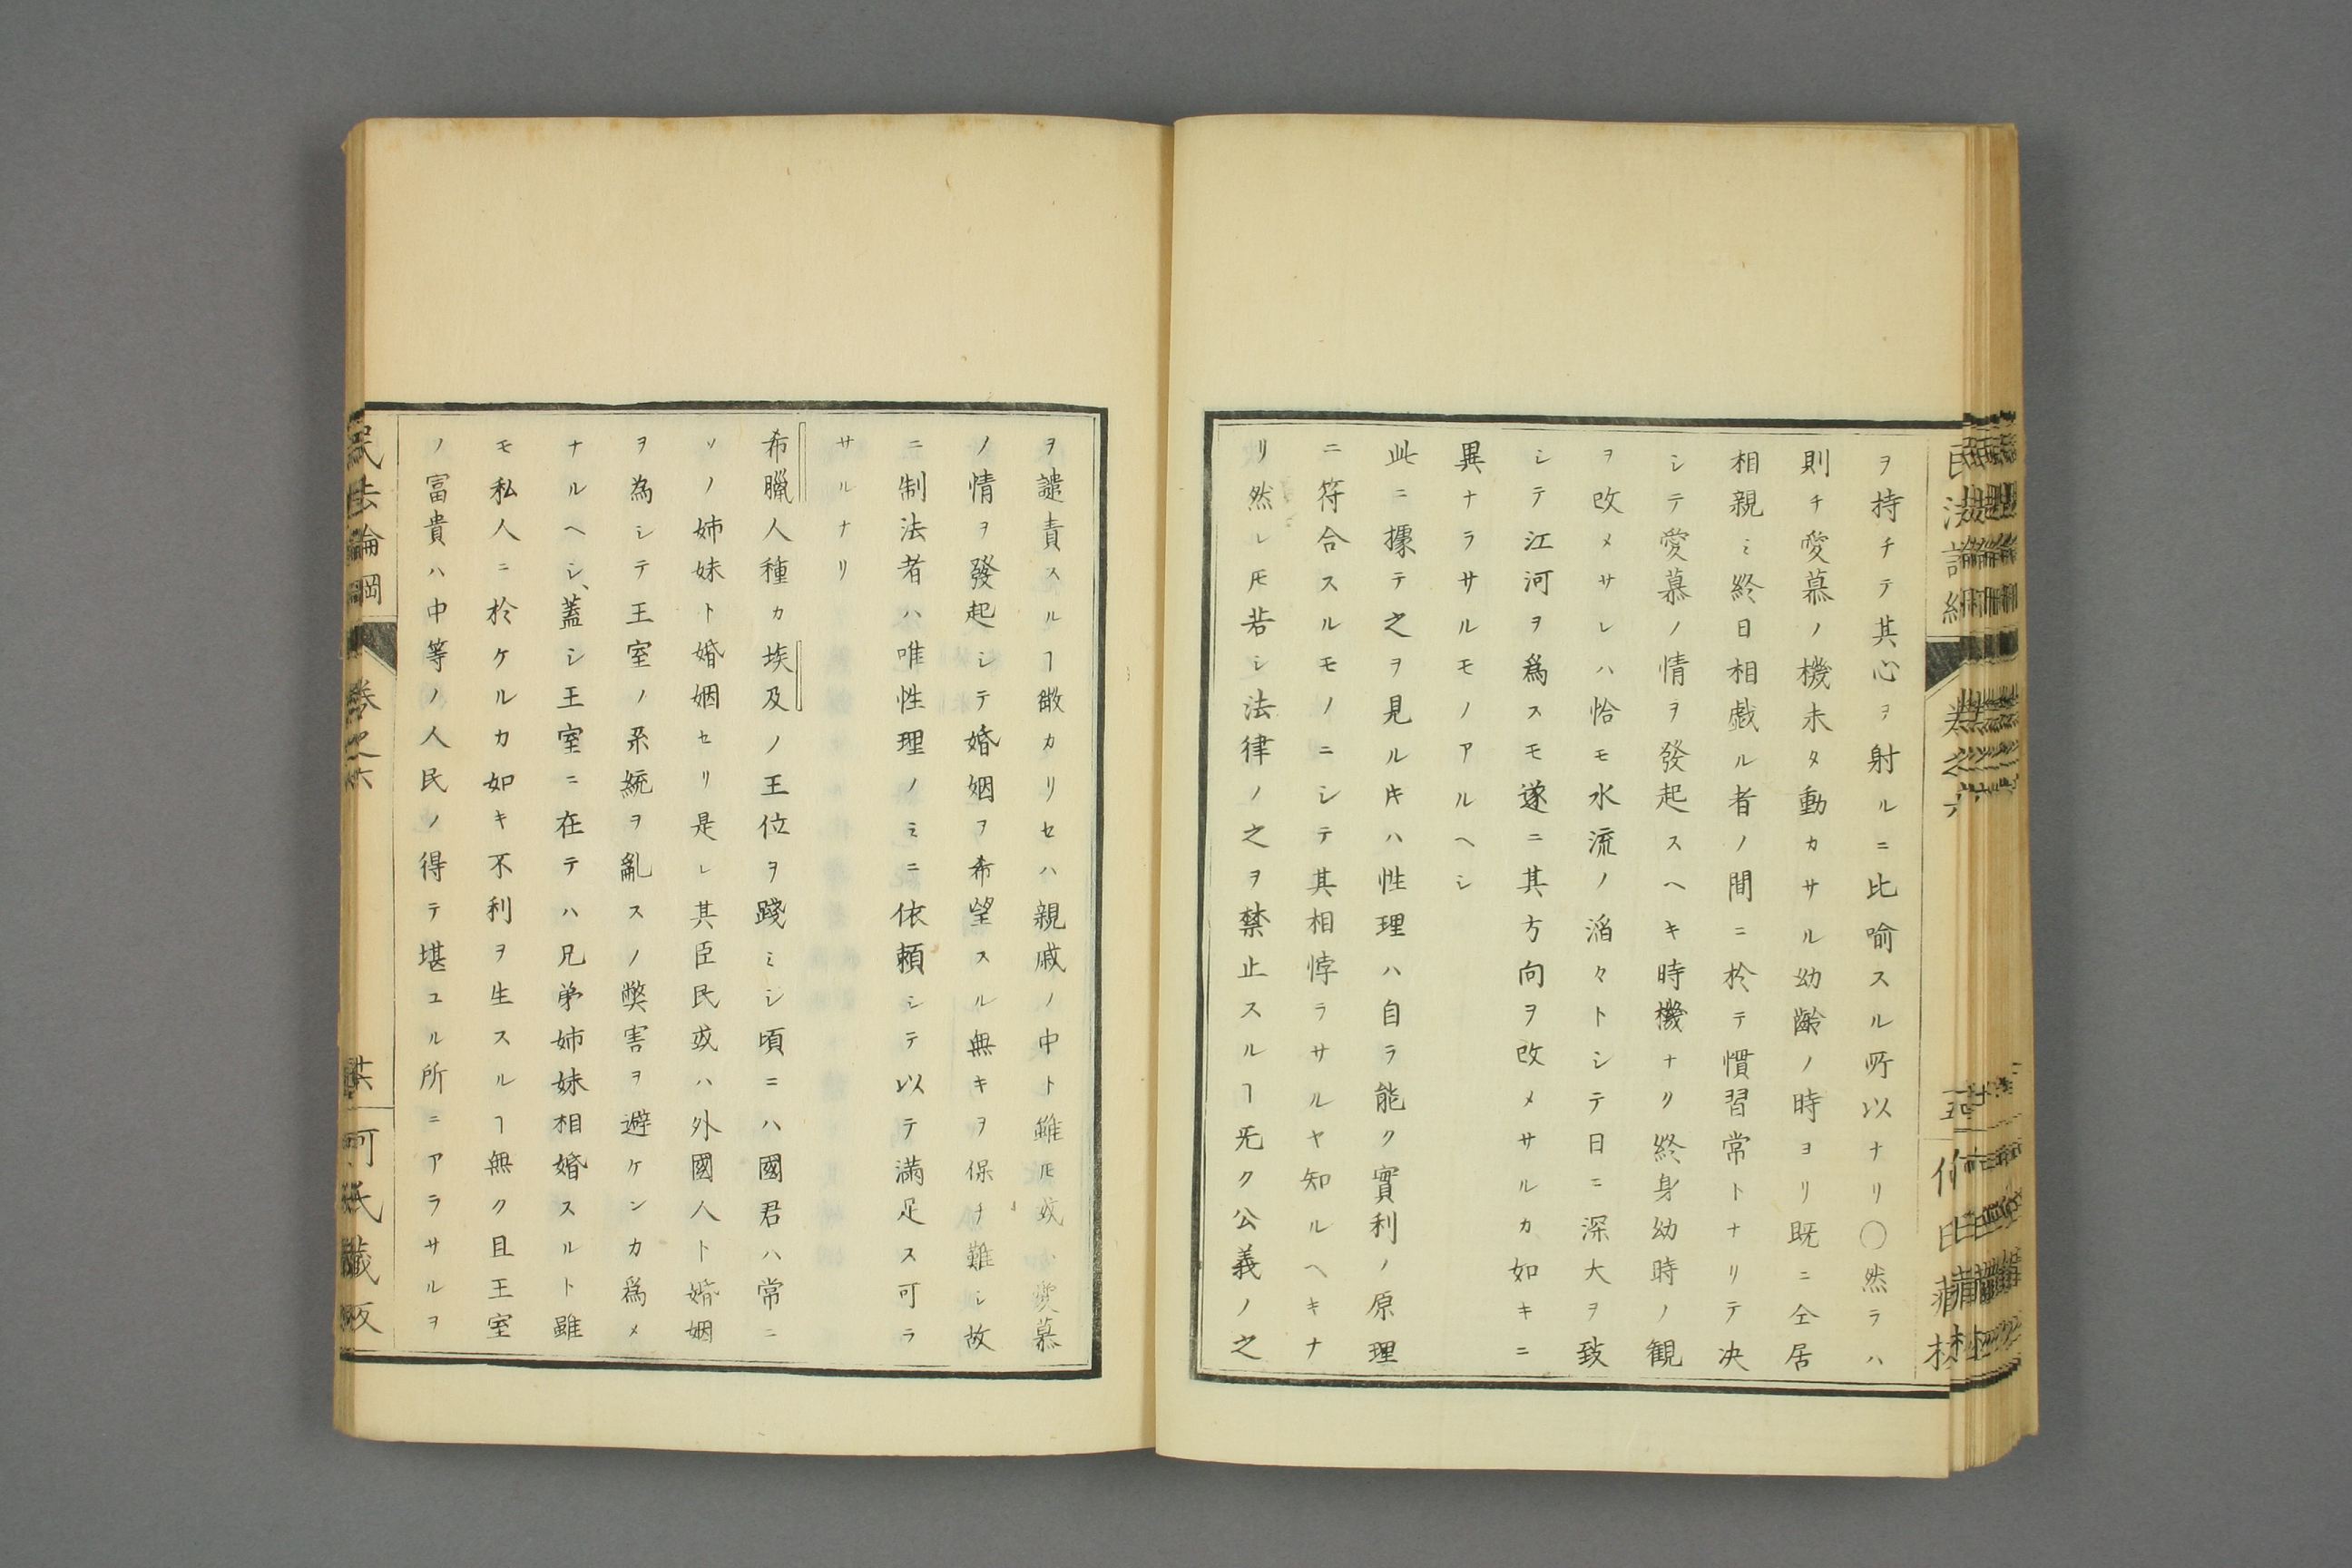 ヲ持チテ其心ヲ射ルニ比喻スル所以ナリ〇然ラハ
則チ愛慕ノ機未タ動カサル幼齢ノ時ヨリ既ニ仝居
相親ミ終日相戯ル者ノ間ニ於テ慣習常トナリテ决
シテ愛慕ノ情ヲ發起スヘキ時機ナク終身幼時ノ観
ヲ改メサレハ恰モ水流ノ滔々トシテ日ニ深大ヲ致
シテ江河ヲ爲スモ遂ニ其方向ヲ改メサルカ如キニ
異ナラサルモノアルヘシ
此ニ據テ之ヲ見ルㇳキハ性理ハ自ラ能ク實利ノ原理
ニ符合スルモノニシテ其相悖ラサルヤ知ルヘキナ
リ然レㇳモ若シ法律ノ之ヲ禁止スルヿ旡ク公義ノ之
ヲ譴責スルヿ微カリセハ親戚ノ中ト雖ㇳモ或ハ愛慕
ノ情ヲ發起シテ婚姻ヲ希望スル無キヲ保チ難シ故
ニ制法者ハ唯性理ノミニ依頼シテ以テ満足ス可ラ
サルナリ
希臘人種カ埃及ノ王位ヲ踐ミシ頃ニハ國君ハ常ニ
ソノ姉妹ト婚姻セリ是レ其臣民或ハ外國人ト婚姻
ヲ為シテ王室ノ系統ヲ亂スノ獘害ヲ避ケンカ爲メ
ナルヘシ、蓋シ王室ニ在テハ兄弟姉妹相婚スルト雖
モ私人ニ於ケルカ如キ不利ヲ生スルヿ無ク且王室
ノ富貴ハ中等ノ人民ノ得テ堪ユル所ニアラサルヲ
民法論綱 巻之六 何氏藏版